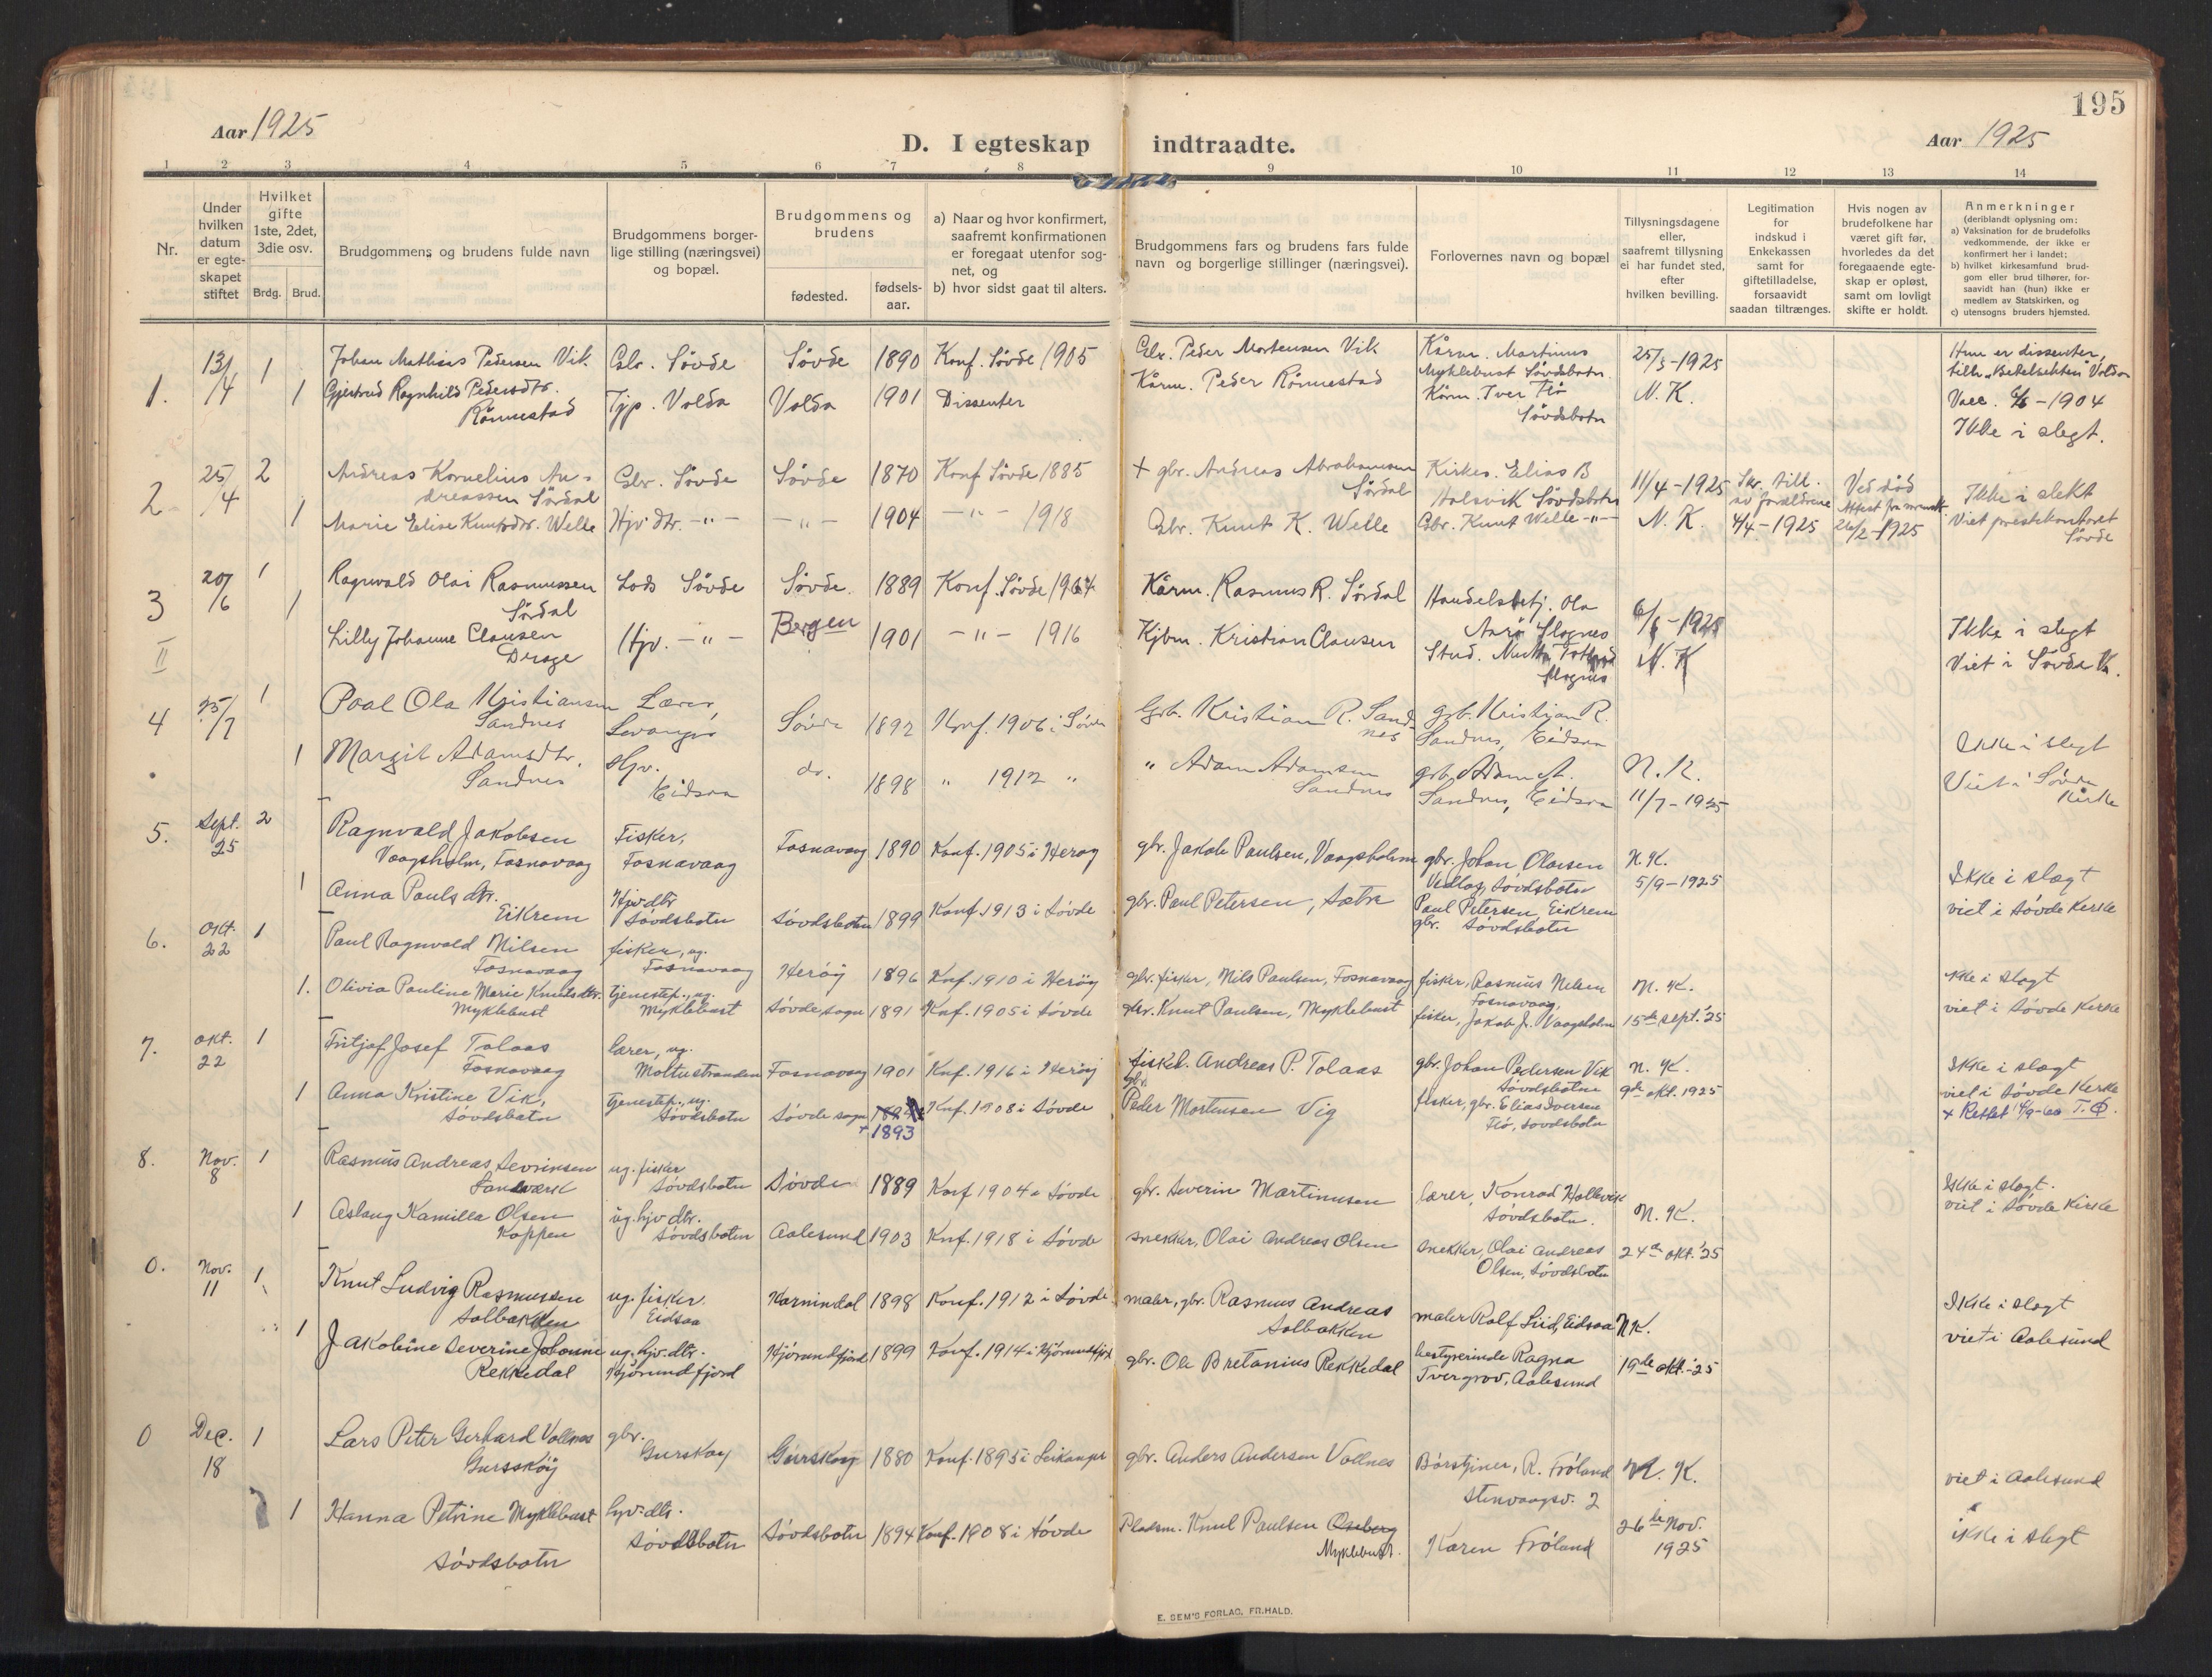 195
Aar 1925
D. I egteskap indtraadte.
Aar 1925
1 2 3 4 5 6 7 8 9 10 11 12 13 14
Nr.
Under hvilken datum er egte-skapet stiftet
Hvilket gifte 1ste, 2det, 3die osv.
Brdg. Brud.
Brudgommens og brudens fulde navn
Brudgommens borger-lige stilling (næringsvei) og bopæl.
Brudgommens og brudens
fødested.
fødsels-aar.
a) Naar og hvor konfirmert, saafremt konfirmationen er foregaat utenfor sog-net, og
b) hvor sidst gaat til alters.
Brudgommens fars og brudens fars fulde navn og borgerlige stillinger (næringsvei).
Forlovernes navn og bopæl
Tillysningsdagene eller, saafremt tillysning ei har fundet sted, efter hvilken bevilling.
Legitimation for indskud i Enkekassen samt for giftetilladelse, forsaavidt saadan tiltrænges.
Hvis nogen av brudefolkene har været gift før, hvorledes da det foregaaende egte-skap er opløst, samt om lovligt skifte er holdt.
Anmerkninger
(deriblandt oplysning om:
a) Vaksination for de brudefolks vedkommende, der ikke er konfirmert her i landet;
b) hvilket kirkesamfund brud-gom eller brud tilhører, for-saavidt han (hun) ikke er medlem av Statskirken, og
c) utensogns bruders hjemsted.
1. 13/4 1 Johan Mathias Pedersen Vik Gbr. Søvde Søvde 1890 Konf. Søvde 1905 Gbr. Peder Mortensen Vik Kårm. Martinus Myklebust Søvdsbotn 25/3-1925 Hun er dissenter,
1 Gjertrud Ragnhild Pedersdtr. Rönnestad Tjp. Volda Volda 1901 Dissenter Kårm. Peder Rönnestad Kårm. Iver Flö Søvdsbotn N. K. Vacc. 6/6-1904
Ikke i slegt.
2 25/4 2 Andreas Kornelius An-dreassen Sördal Gbr. Søvde Søvde 1870 Konf Søvde 1885 + gbr. Andreas Abrahamsen Sördal Kirkes. Elias B Holsvik Søvdsbotn 11/4-1925 Skr. till. av foreldrene Ved död Ikke i slekt
1 Marie Elise Knutsdtr. Welle Hjv dtr. -"- -"- 1904 -"- 1918 Gbr. Knut K. Welle Gbr. Knut Welle -"- N. K. 4/4-1925 26/2-1925 Viet prestekontoret Søvde
3 20/6 1 Ragnvald Olai Rasmussen Sördal Lods Søvde Søvde 1889 Konf. Søvde 1904 Kårm. Rasmus R. Sördal Handelsbetj. Ola Aarö Slagnes 6/6-1925 Ikke i slegt
II 1 Lilly Johanne Clausen Drage Hjv. -"- Bergen 1901 -"- 1916 Kjbm. Kristian Clausen Stud. N. K Viet i Søvde K.
4 25/7 1 Paal Ola Kristiansen Sandnes Lærer, Levanger Søvde 1892 Konf. 1906 i Søvde Grb. Kristian R. Sand-nes grb. Kristian R. Sandnes, Eidsaa Ikke i slegt
1 Margit Adamsdtr. Sandnes Hjv. Eidsaa do. 1898 " 1912 " " Adam Adamsen Sandnes grb. Adam A. Sandnes, Eidsaa N. K. 11/7-1925 Viet i Søvde Kirke
5. Sept. 25 2 Ragnvald Jakobsen Vaagsholm, Fosnavaag Fisker, Fosnavaag Fosnavaag 1890 Konf. 1905 i Herøy gbr. Jakob Paulsen, Vaagsholm gbr. Johan Olausen Vedlog, Søvdsbotn N. K. 5/9-1925 Ikke i slægt
1 Anna Pauls dtr. Eikrem Hjv dtr Søvdsbotn Søvdsbotn 1899 Konf. 1913 i Søvde gbr. Paul Petersen, Sætre Paul Petersen, Eikrem gbr. Søvdsbotn viet i Søvde Kirke
6. Okt. 22 1 Paul Ragnvald Nilsen Fosnavaag fisker, ug. Fosnavaag Herøy 1896 Knf. 1910 i Herøy gbr. fisker, Nils Paulsen, Fosnavaag fisker, Rasmus Nilsen Fosnavaag, N. K. Ikke i slægt
1. Olivia Pauline Marie Knutsdtr. Myklebust tjenestep., ug. Myklebust Søvde sogn 1891 Knf. 1905 i Søvde gbr. Knut Paulsen, Myklebust fisker, Jakob J. Vaagsholm 15de sept. '25 viet i Søvde Kirke
7. Okt. 22 1 Fritjof Josef Tolaas Fosnavaag lærer, ug. Moltustranden Fosnavaag 1901 Knf. 1916 i Herøy fiskeb. Andreas P. Tolaas gbr. Johan Pedersen Vik Søvdsbotn N. K. Ikke i slægt
1 Anna Kristine Vik, Søvdsbotn tjenestep., ug. Søvdsbotn Søvde sogn + 1893 Knf. 1908 i Søvde gbr. Peder Mortensen Vig fisker, gbr. Elias Iversen Flö, Søvdsbotn 9de okt. 1925 viet i Søvde Kirke
+ Rettet
8. Nov. 8 1 Rasmus Andreas Sevrinsen Sandværk ug. fisker Søvdsbotn Søvde 1889 Konf 1904 i Søvde gbr. Severin Martinusen lærer, Konrad Hallevik Søvdsbotn. N. K. Ikke i slægt.
1 Aslaug Kamilla Olsen Koppen ug. hjv dtr. Søvdsbotn Aalesund 1903 Knf. 1918 i Søvde snekker, Olai Andreas Olsen snekker, Olai Andreas Olsen, Søvdsbotn 24de okt. '25 viet i Søvde Kirke
0. Nov. 11 1 Knut Ludvig Rasmussen Solbakken ug. fisker. Eidsaa Hornindal 1898 Konf. 1912 i Søvde maler, gbr. Rasmus Andreas Solbakken maler Rolf Liid, Eidsaa N K. Ikke i slægt
1 Jakobine Severine Johanne Rekkedal ug. hjv. dtr. Hjørundfjord Hjørundfjord 1899 Konf. 1914 i Hjørundfjord gbr. Ole Bretanius Rekkedal bestyrerinde Ragna Tvergrov, Aalesund 19de okt. '25 viet i Aalesund
0 Dec. 18 1 Lars Peter Gerhard Vollnes Gursskøy gbr. Gurskøy Gurskøy 1880 Konf. 1895 i Leikanger gbr. Anders Andersen Vollnes R. Fröland 2 N. K. viet i Aalesund
1 Hanna Petrine Myklebust Søvdsbotn hjv. dtr. Søvdsbotn Søvdsbotn 1894 Konf. 1908 i Søvde Pladsm. Knut Paulsen Myklebust. Karen Fröland 26de Nov. 1925 ikke i slegt
E. SEM'S FORLAG, FR.HALD.